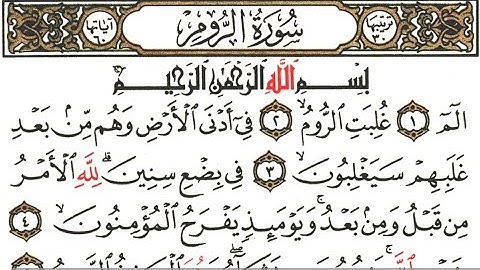 ترتيبها ٣٠ سُورَةُ الرُّومِ آياتها ٦٠
بِسْمِ اللَّهِ الرَّحْمَٰنِ الرَّحِيمِ
الٓمٓ ۝١ غُلِبَتِ ٱلرُّومُ ۝٢ فِىٓ أَدْنَى ٱلْأَرْضِ وَهُم مِّنۢ بَعْدِ
غَلَبِهِمْ سَيَغْلِبُونَ ۝٣ فِى بِضْعِ سِنِينَ ۗ لِلَّهِ ٱلْأَمْرُ
مِن قَبْلُ وَمِنۢ بَعْدُ ۚ وَيَوْمَئِذٍ يَفْرَحُ ٱلْمُؤْمِنُونَ ۝٤